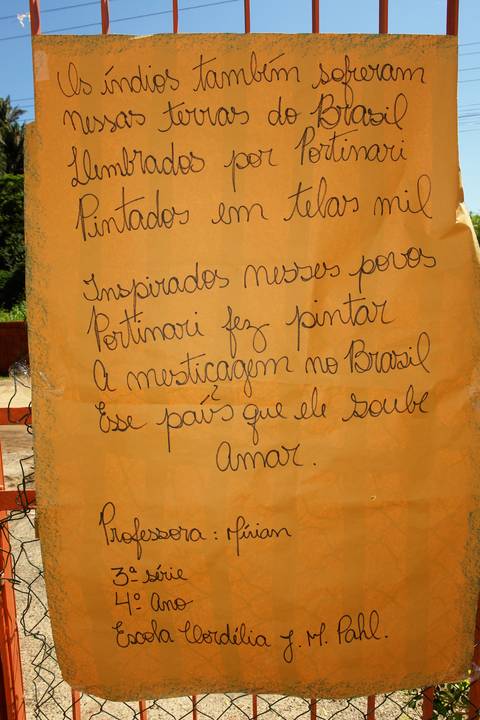 Os índios também sofreram
nessas terras do Brasil
Lembrados por Portinari
Pintados em telas mil
Inspirados nesses povos
Portinari fez pintar
A mesticagem no Brasil
Ese país que ele soube
Amar.
Professora: Mírian
3ª série
4º Ano
Escola Cordélia J. M. Pahl.